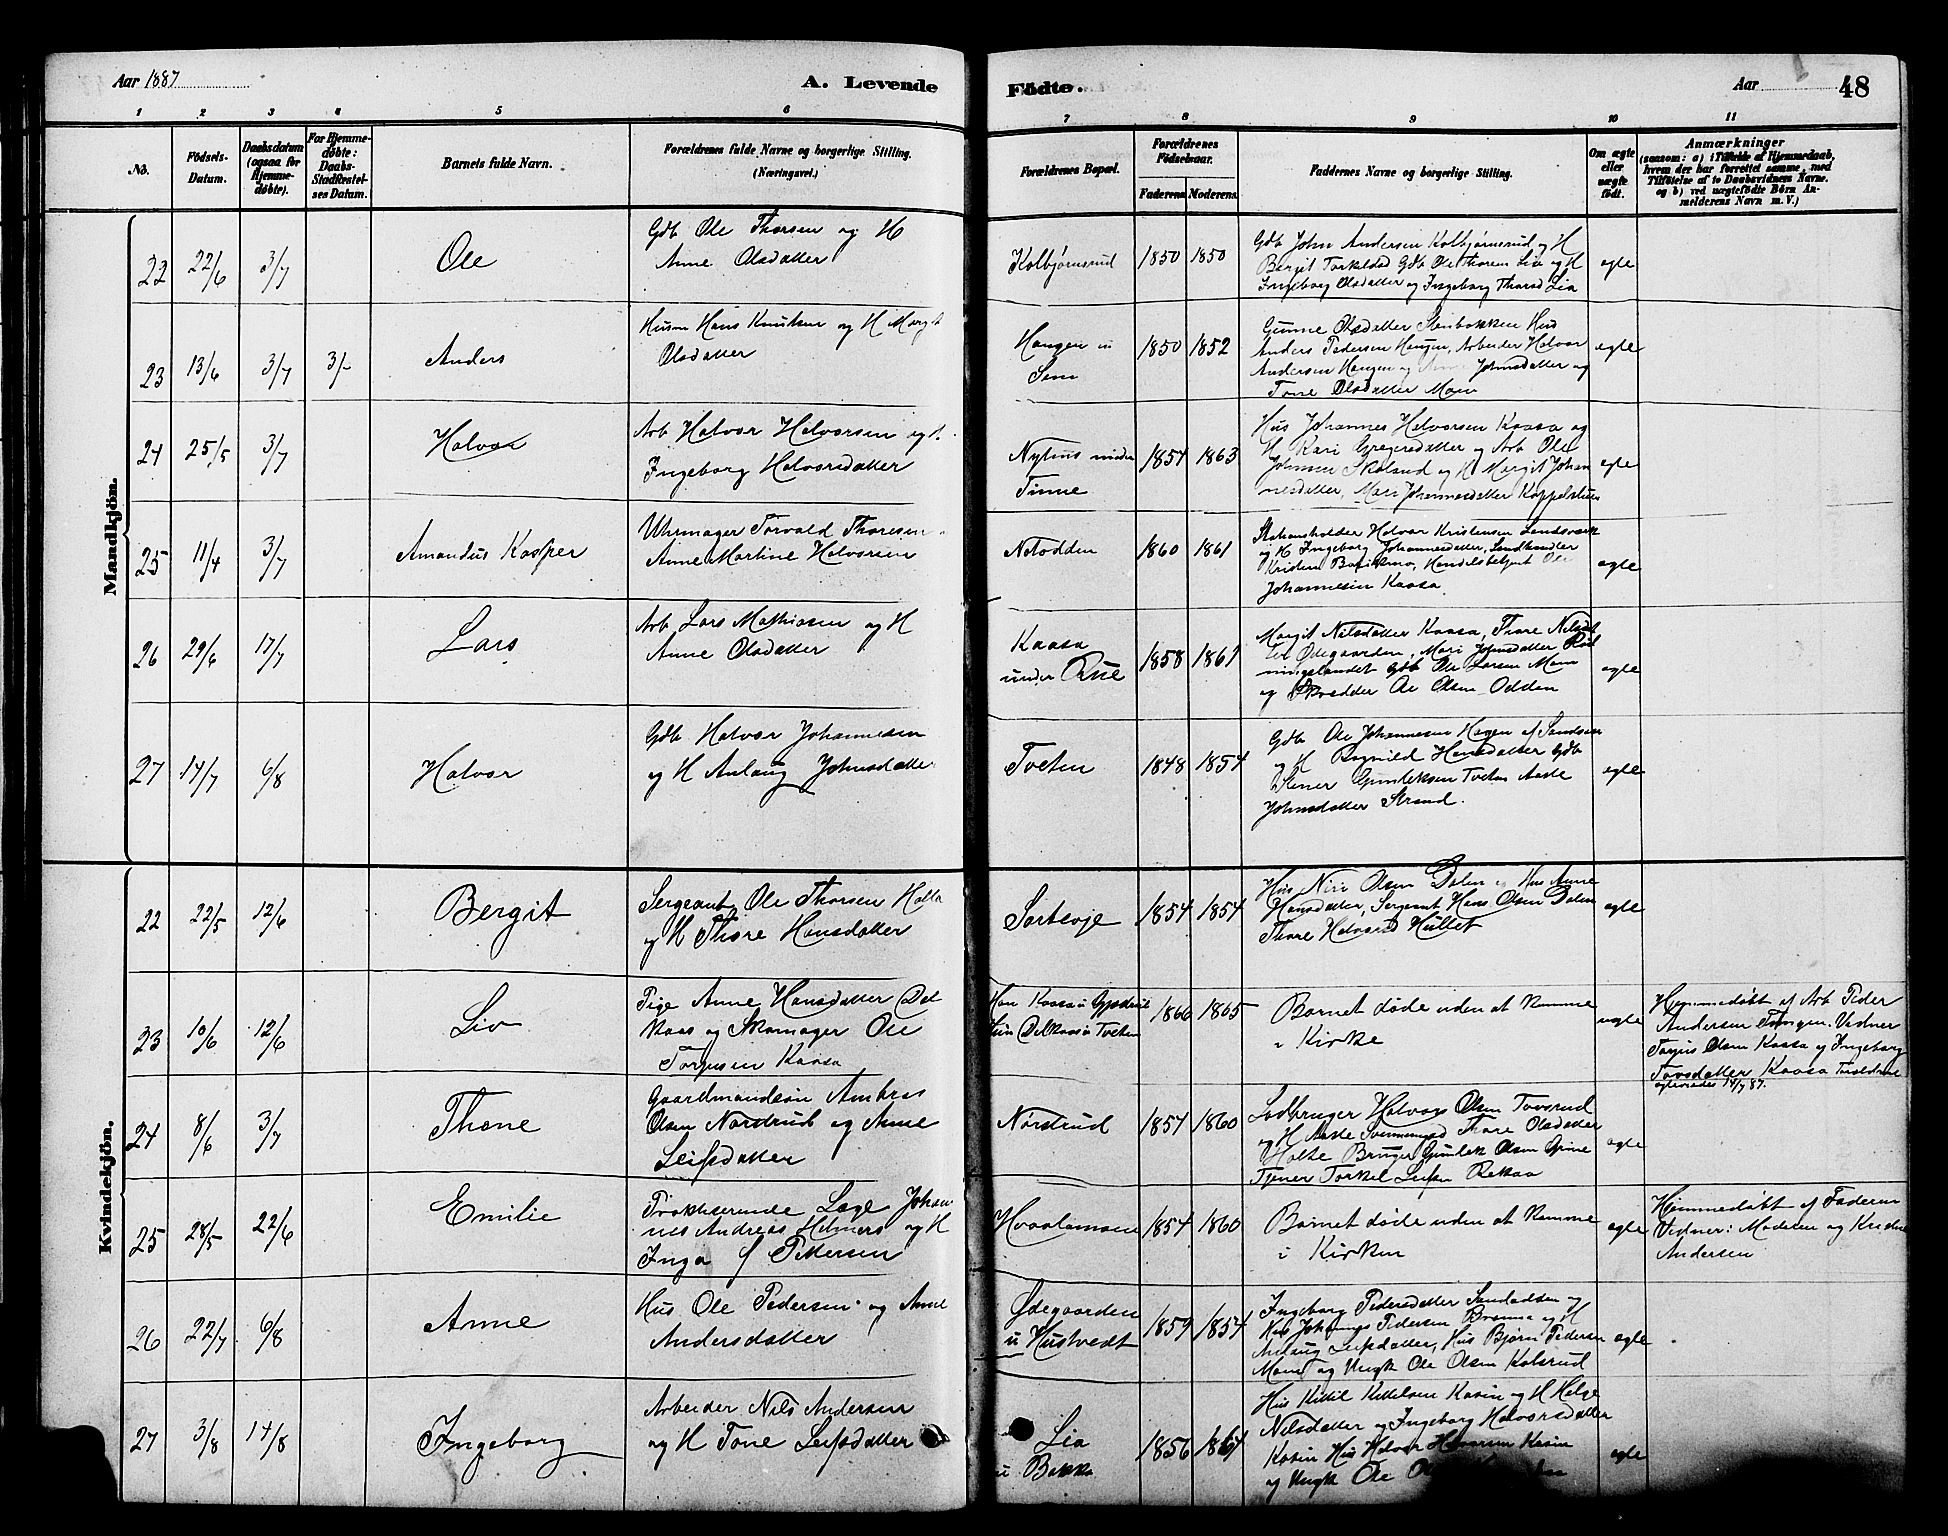 Aar 1887
A. Levende
Fødte.
Aar
48
1 2 3 4 5 6 7 8 9 10 11
No.
Fødsels-
Datum.
Daabsdatum
(ogsaa for
Hjemme-
døbte).
For Hjemme-
døbte:
Daabs-
Stadfæstel-
ses Datum.
Barnets fulde Navn.
Forældrenes fulde Navne og borgerlige Stilling.
(Næringsvei.)
Forældrenes Bopæl.
Forældrenes
Fødselsaar.
Faderens Moderens
Faddernes Navne og borgerlige Stilling.
Om ægte
eller
uægte
født.
Anmærkninger
(saasom: a) i Tilfælde af Hjemmedaab,
hvem der har forrettet samme, med
Tilføielse af to Daabsvidners Navne,
og b) ved uægtefødte Børn An-
melderens Navn m. V.)
Mandkjøn.
22 22/6 3/7
Ole
Gdb Ole Thorsen og H
Anne Olsdatter
Kolbjørnsrud 1850 1850
Gdb John Andersen Kolbjørnsrud og H
Bergit Torkelsd Gdb Ole Thorsen Lia og H
Ingeborg Olsdatter og Ingeborg Thorsd Lia
egte
23 13/6 3/7 3/-
Anders
Husm Hans Knutsen og H Margit
Olsdatter
Haugen u
Sem
1850 1852
Gunne Olsdatter Stenbakken Hus
Anders Pedersen Haugen, Arbeider Halvor
Andersen Haugen og Johnsdatter og
Tone Olsdatter Moen
egte
24 25/5 3/7
Halvor
Arb Halvor Halvorsen og H
Ingeborg Halvorsdatter
Nyhus under
Tinne
1857 1863
Hus Johannes Halvorsen Kaasa og
H Kari Gregersdatter og Arb Ole
Johnsen Skolend og H Margit Johan
nesdatter, Mari Johannesdatter
egte
25 11/4 3/7
Amandus Kasper
Uhrmager Torvald Thoresen
Anne Martine Halvorsen
Notodden 1860 1861
Stationsholder Halvor Kristensen Landsværk
og H Ingeborg Johannesdatter, Landhandler
Kristen, Handelsbetjent Ole
Johannessen Kaasa.
egte
26 29/6 17/7
Lars
Arb Lars Mathisen og H
Anne Olsdatter
Kaasa
under Rue
1858 1861
Margit Nilsdatter Kaasa, Thore Nilsdat
ter Ødegaarden, Mari Johnsdatter Rød
ningslandet Gdb Ole Larsen Moen
og Skrædder Ole Olsen Odden
egte
27 14/7 6/8
Halvor
Gdb Halvor Johannesen
og H Anlaug Johnsdatter
Tveten 1848 1854
Gdb Ole Johannesen Hagen af
og H Ragnild Hansdatter Gdb
Stener Gunleksen Tveten Aaste
Johnsdatter Strand.
egte
Kvindekjøn.
22 22/5 12/6
Bergit
Sergeant Ole Thorsen Holta
og H Thore Hansdatter
Sortsøje 1854 1854
Hus Niri Olsen Dalen og Hus Anne
Hansdatter, Sergeant Hans Olsen Dalen
Thore Halvorsd Hullet
egte
23 10/6 12/6
Liv
Pige Anne Hansdatter Dal
kaas og Skomager Ole
Torjusen Kaasa
Han Kaasa u
Hun Dalkaas u Tveten
1866 1865
Barnet døde uden at komme
i Kirke
uegte
Hjemmedøbt af Arb Peder
Andersen Tangen. Vidner
Torjus Olsen Kaasa og Ingeborg
Tovsdatter Kaasa Forældrene
egteviedes 14/7 87.
24 8/6 3/7
Thone
Gaardmandssøn Ambros
Olsen Nordtrud og Anne
Leifsdatter
Nordtrud 1857 1860
Ladbruger Halvor Olsen Tovsrud
og H Aaste Svennungsd Thore Olsdatter
Holte Bruger Gunlek Olsen Grine
Tjener Torkel Leifsen Rekaa
egte
25 28/5 22/6
Emilie
Praktiserende Læge Johan
nes Andreas Helmers og H
Inga f Pettersen
Hvaalamoen 1854 1860
Barnet døde uden at komme
i Kirken
egte
Hjemmedøbt af Faderen
Vidner: Moderen og
Andersen
26 22/7 6/8
Anne
Hus Ole Pedersen og Anne
Andersdatter
Ødegaarden
u Hustvedt
1859 1854
Ingeborg Pedersdatter Sandodden og
Hus Johannes Pedersen og H
Anlaug Leifsdatter, Hus Bjørn Pedersen
Moen og Ungk Ole Olsen Kolsrud
egte
27 3/8 14/8
Ingeborg
Arbeider Nils Andersen
og H Tone Leifsdatter
Lia
u Bakka
1856 1861
Hus Kittil Kittilsen Kasin og H Helge
Nilsdatter og Ingeborg Halvorsdatter
Kasin Hus Halvor Halvorsen Kasin
og Ungk Ole
egte